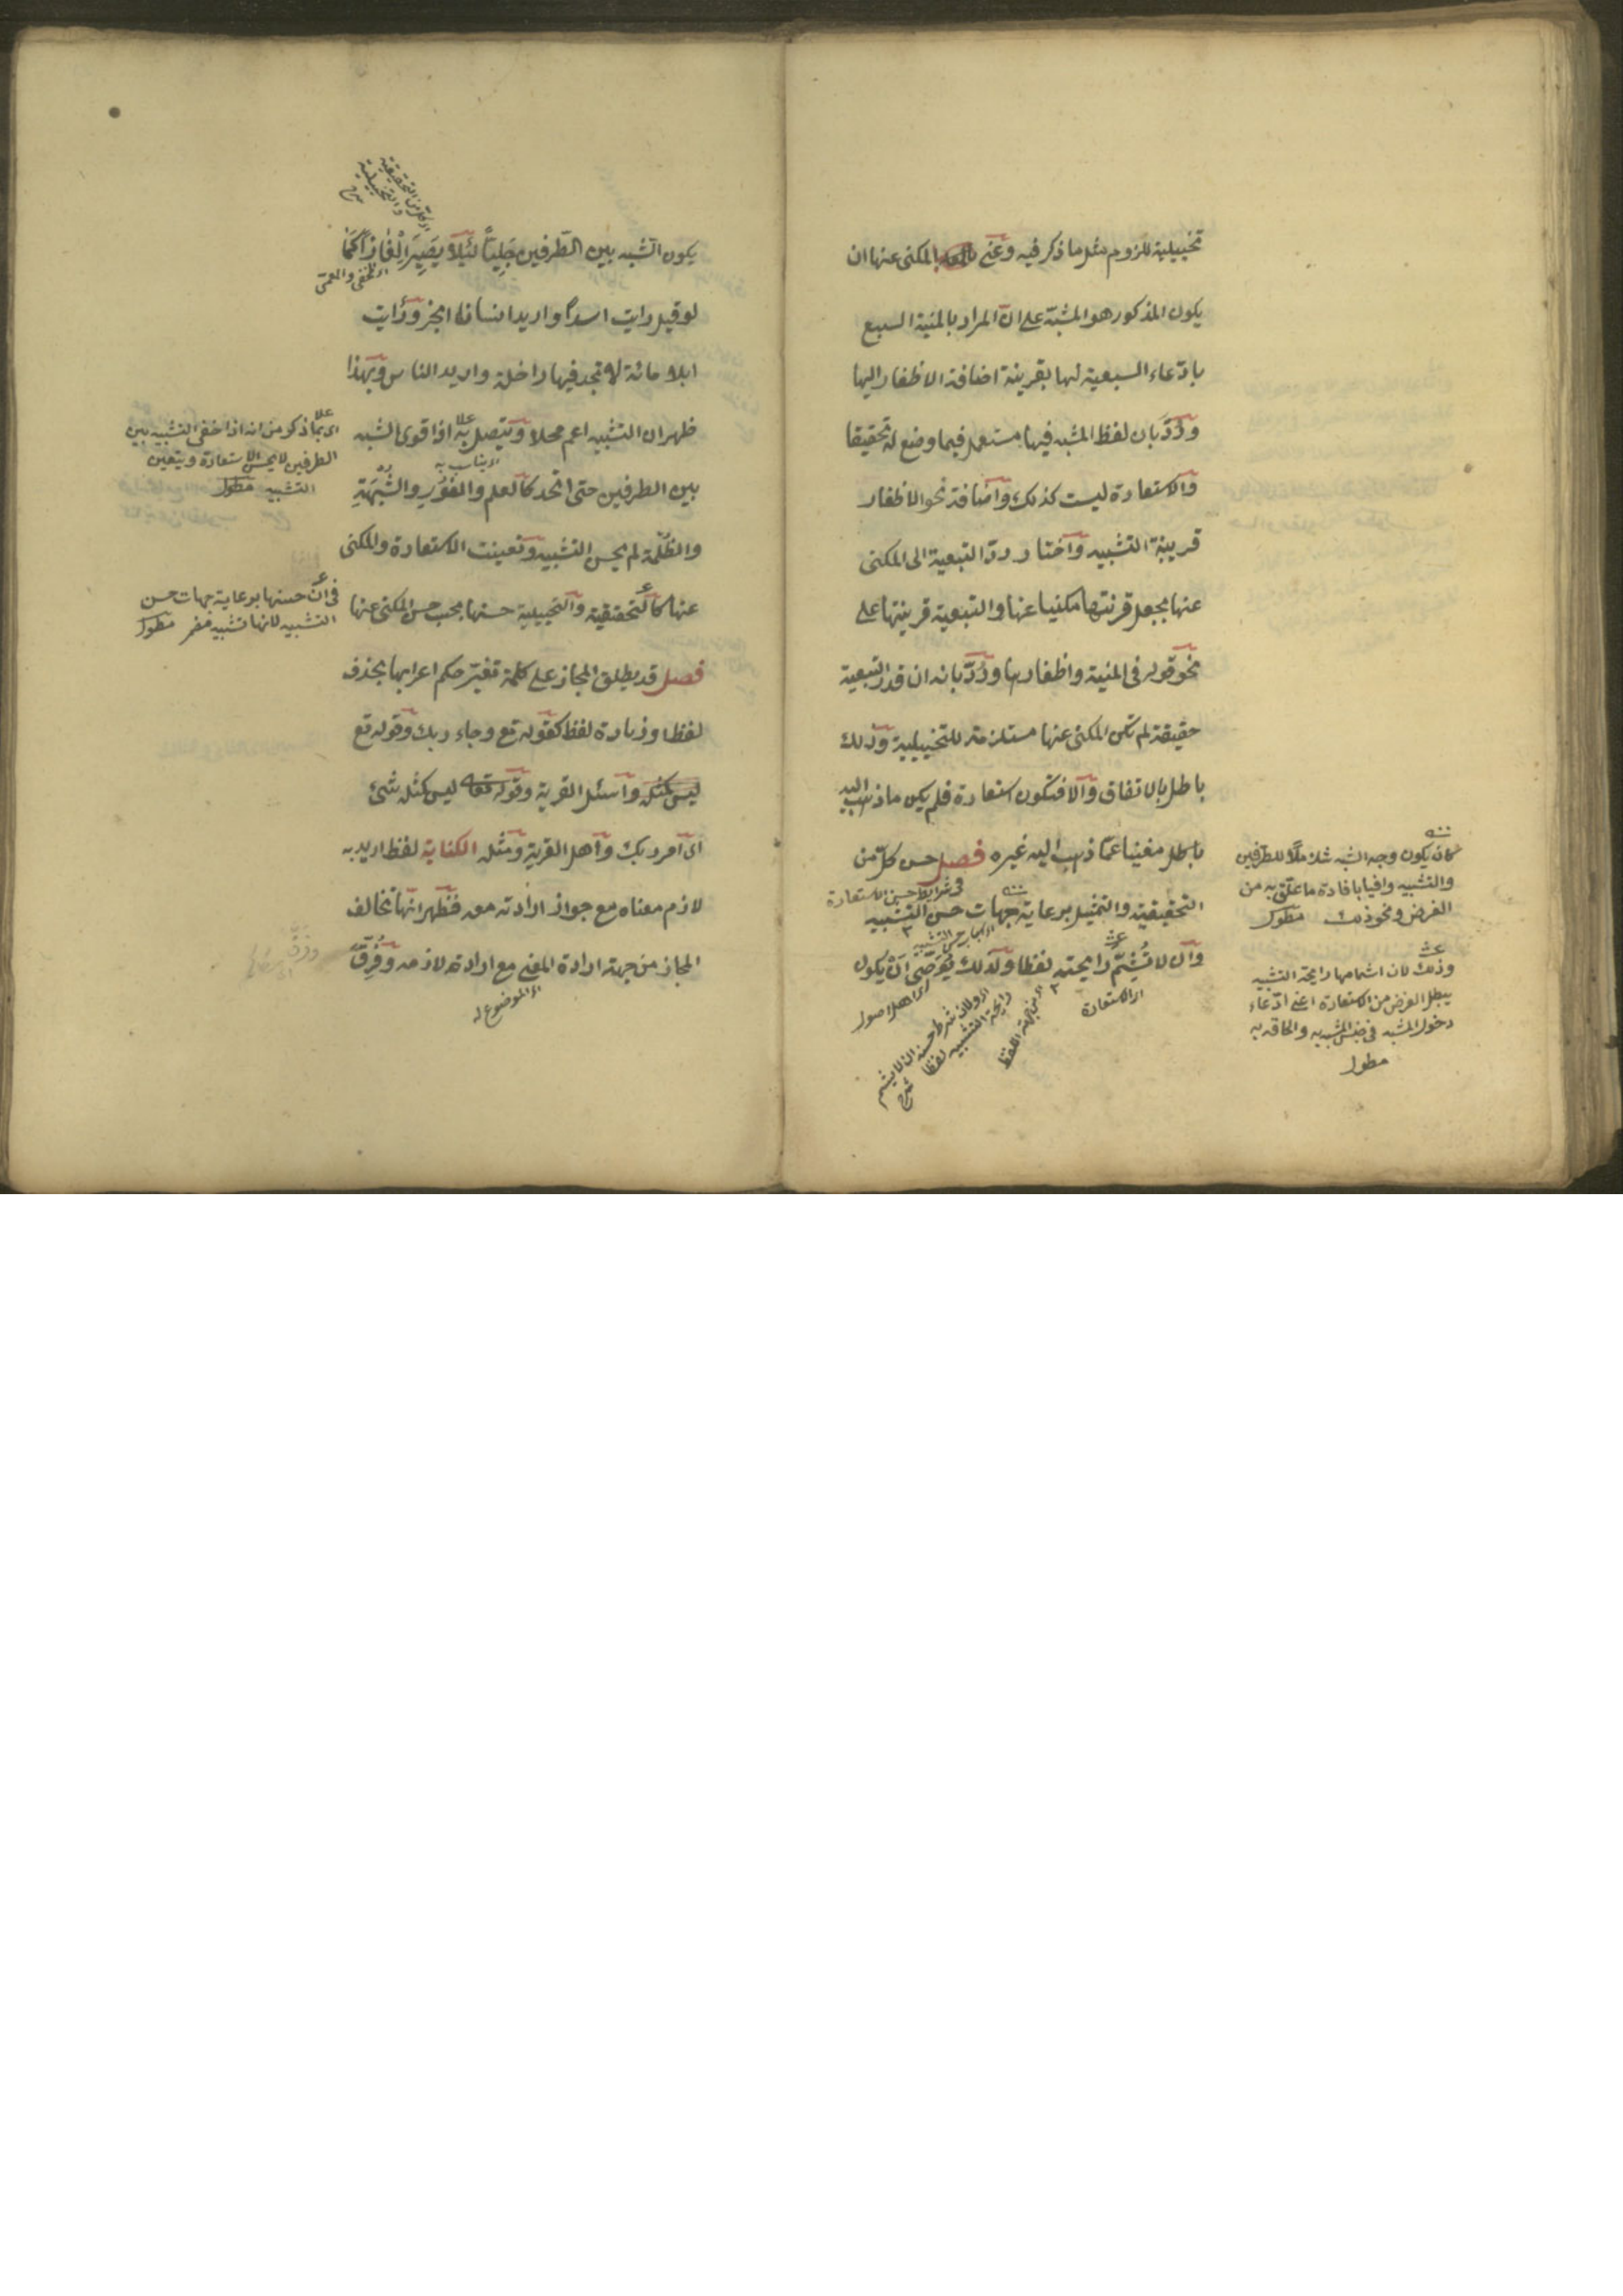 تخييلية للزوم مثل ما ذكر فيه وعنى بالمكنى عنها ان
يكون المذكور هو المشبه على انّ المراد بالمنية السبع
بادّعاء السبعية لها بقرينة اضافة الاظفار اليها
ورُدّ بان لفظ المشبه فيها مستعمل فيما وضع له تحقيقا
والاستعارة ليست كذلك واضافة نحو الاظفار
قرينة التشبيه واختار ردّ التبعية الى المكنى
عنها بجعل قرينتها مكنيا عنها والتبعية قرينتها على
نحو قوله فى المنية واظفارها ورُدّ بانه ان قدر التبعية
حقيقة لم تكن المكنى عنها مستلزمة للتخييلية وذلك
باطل بالاتفاق والّا فتكون استعارة فلم يكن ما ذهب اليه
مغنيا عمّا ذهب اليه غيره فصل حسن كلّ من
فى شرايط حسن الاستعارة
التحقيقية والتمثيل برعاية جهات حسن التشبيه
وان لا تُشمّ رايحته لفظا ولذلك يُوصّى ان يكون
اى الاستعارة
اى من جهة اللفظ
اى ولان شرط حسنه ان لا يشم
رايحة التشبيه لفظا
شرح
كان يكون وجه الشبه شاملًا للطرفين
والتشبيه وافيا بافادة ما علّق به من
الغرض ونحو ذلك مطول
وذلك لان اشمامها رايحة التشبيه
يبطل الغرض من الاستعارة اعنى ادّعاء
دخول المشبه فى جنس المشبه به والحاقه به
مطول
اى كل من التحقيقية
والتخييلية
شرح
يكون الشبه بين الطّرفين جَلِيّاً لئَلّا يَصِيرَ اِلْغَازاً كَمَا
لو قيل رايت اسدًا واريد انسان ابخر ورَأيت
ابلا مائة لا تجد فيها راحلة واريد الناس وبهذا
ظهر ان التشبيه اعم محلا ويتّصل به اذا قوى الشبه
اى يناسب به
بين الطرفين حتى اتّحد كالعلم والنّور والشُّبهَةِ
والظّلمة لم يحسن التشبيه وتعينت الاستعارة والمكنى
عنها كالتحقيقية والتخييلية حسنها بحسب حسن المكنى عنها
فصل قد يطلق المجاز على كلمة تغيّر حكم اعرابها بحذف
لفظ او زيادة لفظ كقوله تع وجاء ربك وقوله تع
ليس كمثله واسئل القرية وقوله تعالى ليس كمثله شئ
اى امر ربك واهل القرية ومثله الكناية لفظ اريد به
لازم معناه مع جواز ارادته معه فظهر انّها تخالف
المجاز من جهة ارادة المعنى مع ارادة لازمه وفُرِقَ
اى الموضوع له
اى بما ذكر من انه اذا خفى التشبيه بين
الطرفين لا يحسن الاستعارة ويتعين
التشبيه مطول
فى انّ حسنها برعاية جهات حسن
التشبيه لانها تشبيه مضمر مطول